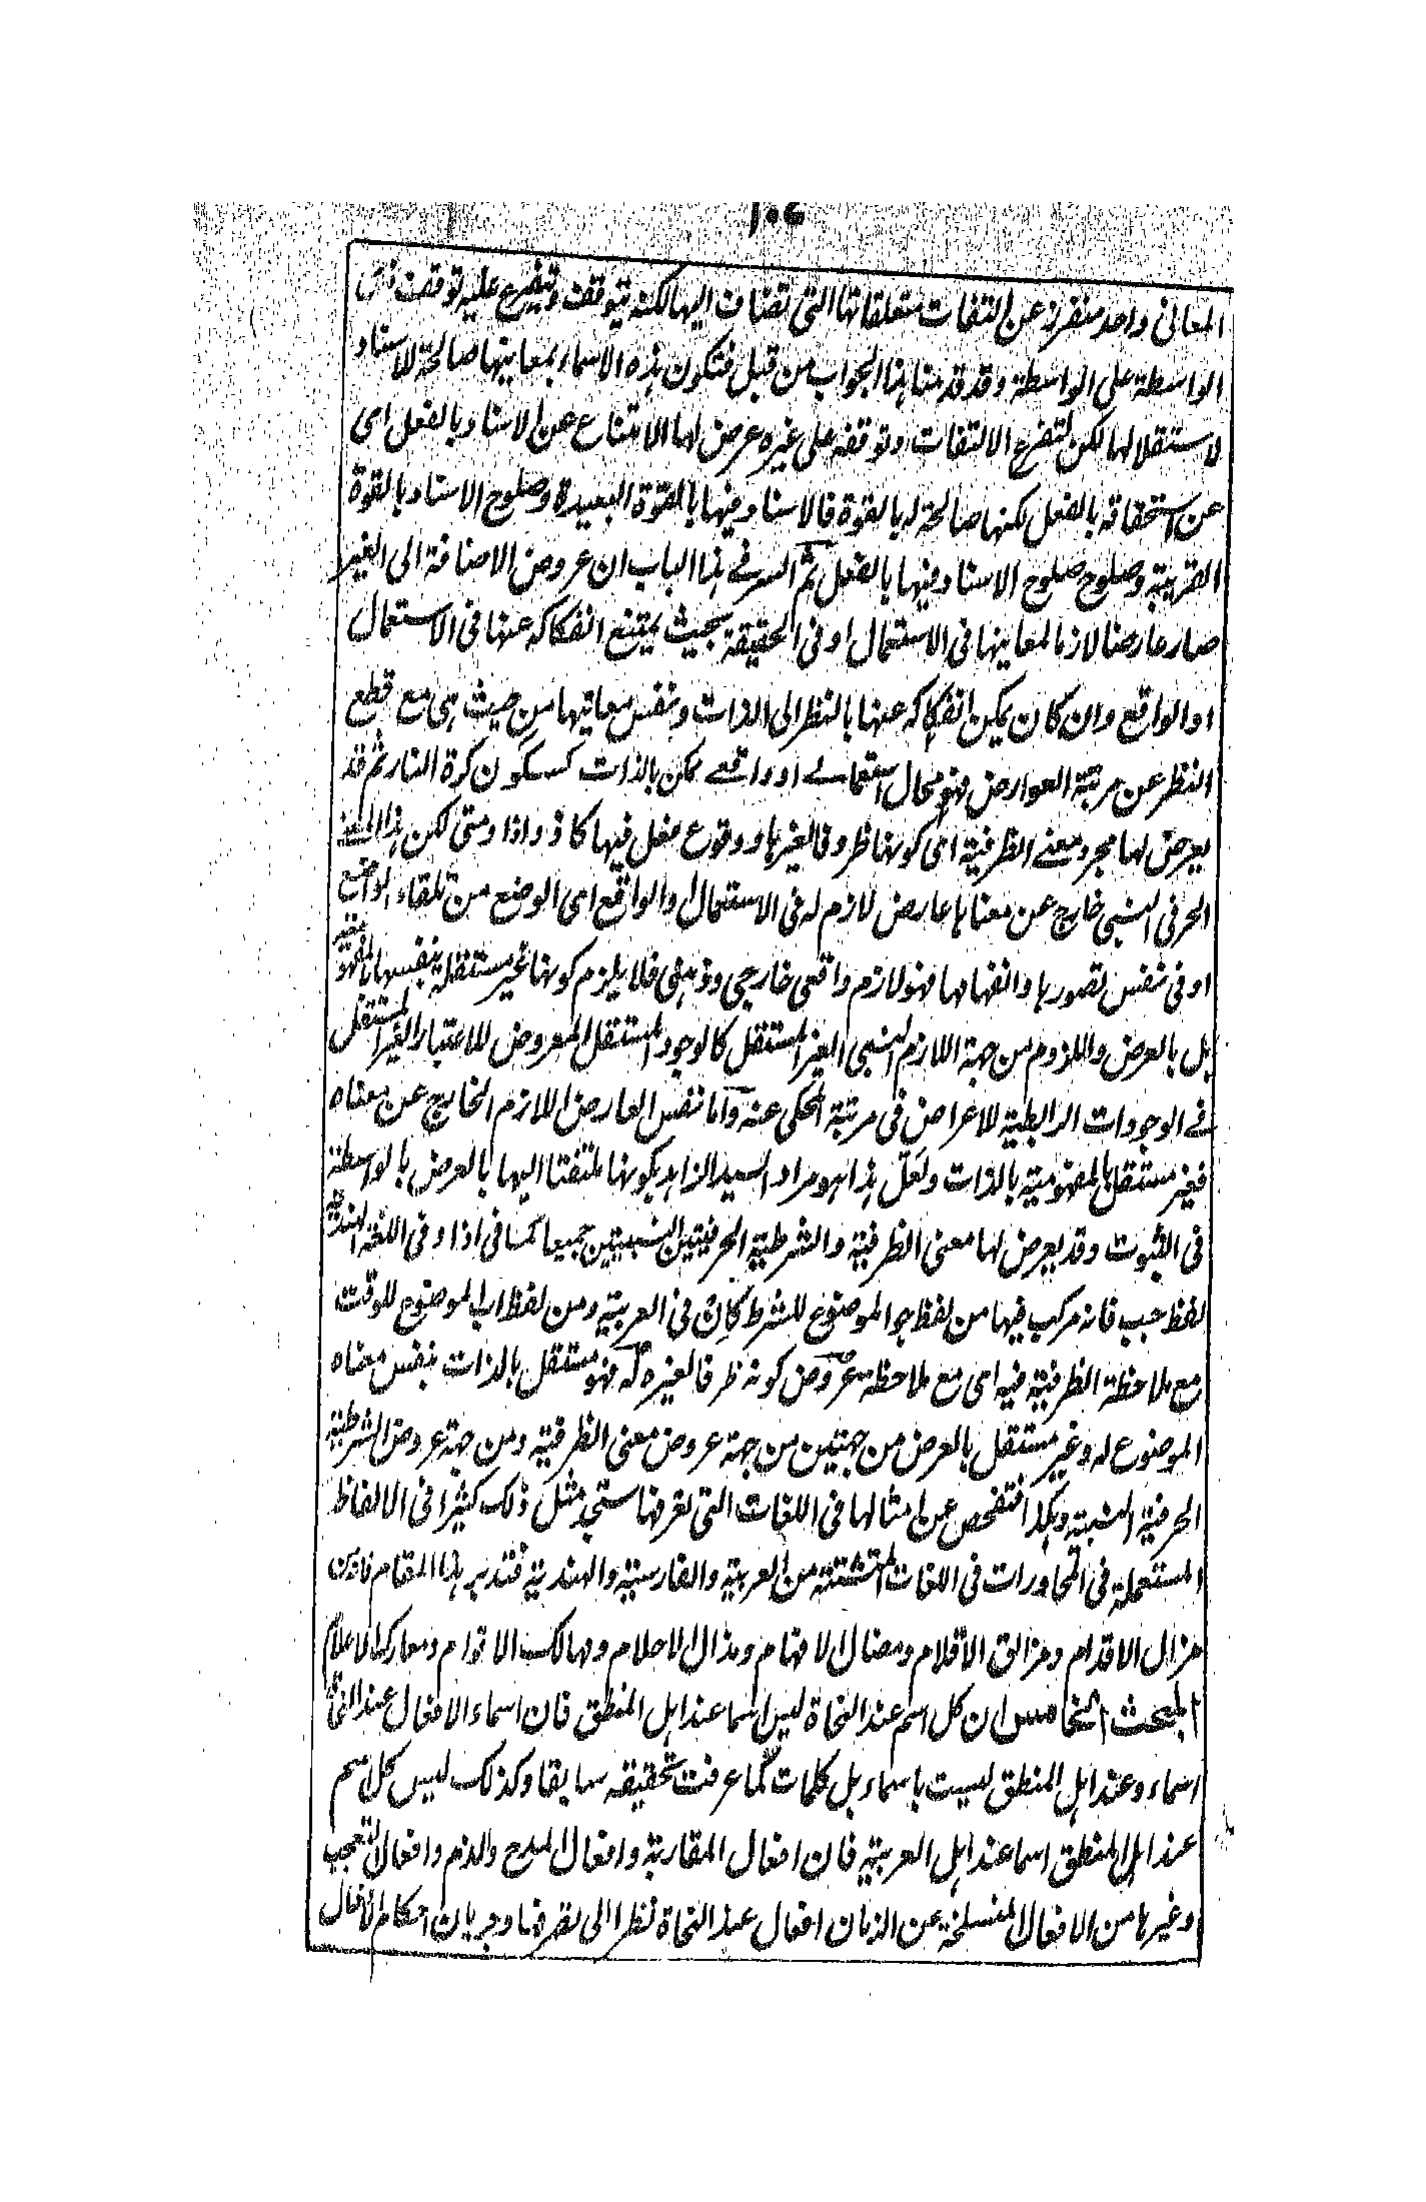 المعانی واحد منفرز عن التفات متعلقاتها التی تضاف الیها لکنه یتوقف ویتفرع علیه توقف
الواسطة علی الواسطة وقد قدمنا هذا الجواب من قبل فتکون هذه الاسماء بمعانیها صالحة للاسناد
لاستقلالها لکن لتفرع الالتفات وتوقفه علی غیره عرض لها الامتناع عن الاسناد بالفعل ای
عن استحقاقه بالفعل لکنها صالحة له بالقوة فالاسناد فیها بالقوة البعیدة وصلوح الاسناد بالقوة
القریبة وصلوح صلوح الاسناد فیها بالفعل ثم السر فی هذا الباب ان عروض الاضافة الی الغیر
صار عارضا لازما لمعانیها فی الاستعمال او فی الحقیقة بحیث یمتنع انفکاکه عنها فی الاستعمال
او الواقع وان کان یمکن انفکاکه عنها بالنظر الی الذات ونفس معانیها من حیث هی مع قطع
النظر عن مرتبة العوارض فهو محال استعمالے او واقعے ممکن بالذات کسکون کرة النار ثم قد
یعرض لها مجرد معنے الظرفیة ای کونها ظروفا لغیرها ووقوع فعل فیها کاذ واذا ومتی لکن هذا المعنے
الحرفی النسبی خارج عن معناها عارض لازم له فی الاستعمال والواقع ای الوضع من تلقاء الواضع
او فی نفس تصورها وانفهامها فهو لازم واقعی خارجی وذهنی فلا یلزم کونها غیر مستقلة بنفسها بالمفهومیة
بل بالعرض واللزوم من جهة اللازم النسبی الغیر المستقل کالوجود المستقل المعروض للاعتبار الغیر المستقل
فے الوجودات الرابطیة للاعراض فی مرتبة المحکی عنه واما نفس العارض اللازم الخارج عن معناه
فغیر مستقل بالمفهومیة بالذات ولعل هذا هو مراد السید الزاهد بکونها ملتفتا الیها بالعرض بالواسطة
فی الثبوت وقد یعرض لها معنی الظرفیة والشرطیة الحرفیتین النسبیتین جمیعا کما فی اذا وفی اللغة الهندیة
لفظ جب فانه مرکب فیها من لفظ جو الموضوع للشرط کان فی العربیة ومن لفظ اب الموضوع للوقت
مع ملاحظة الظرفیة فیه ای مع ملاحظة عروض کونه ظرفا لغیره له فهو مستقل بالذات بنفس معناه
الموضوع له وغیر مستقل بالعرض من جهتین من جهة عروض معنی الظرفیة ومن جهة عروض الشرطیة
الحرفیة النسبیة وهکذا فتفحص عن امثالها فی اللغات التی تعرفها ستجد مثل ذلک کثیرا فی الالفاظ
المستعملة فی المحاورات فی اللغات المتشتتة من العربیة والفارسیة والهندیة فتدبر هذا المقام فانه من
مزال الاقدام ومزالق الاقلام ومضال الافهام ومذال الاحلام ومهالک الاقوام ومعارک الاعلام
المبحث الخامس ان کل اسم عند النحاة لیس اسما عند اهل المنطق فان اسماء الافعال عند النحاة
اسماء وعند اهل المنطق لیست باسماء بل کلمات کما عرفت تحقیقه سابقا وکذلک لیس کل اسم
عند اهل المنطق اسما عند اهل العربیة فان افعال المقاربة وافعال المدح والذم وافعال التعجب
وغیرها من الافعال المنسلخة عن الزمان افعال عند النحاة نظرا الی تصرفها وجریان احکام الافعال